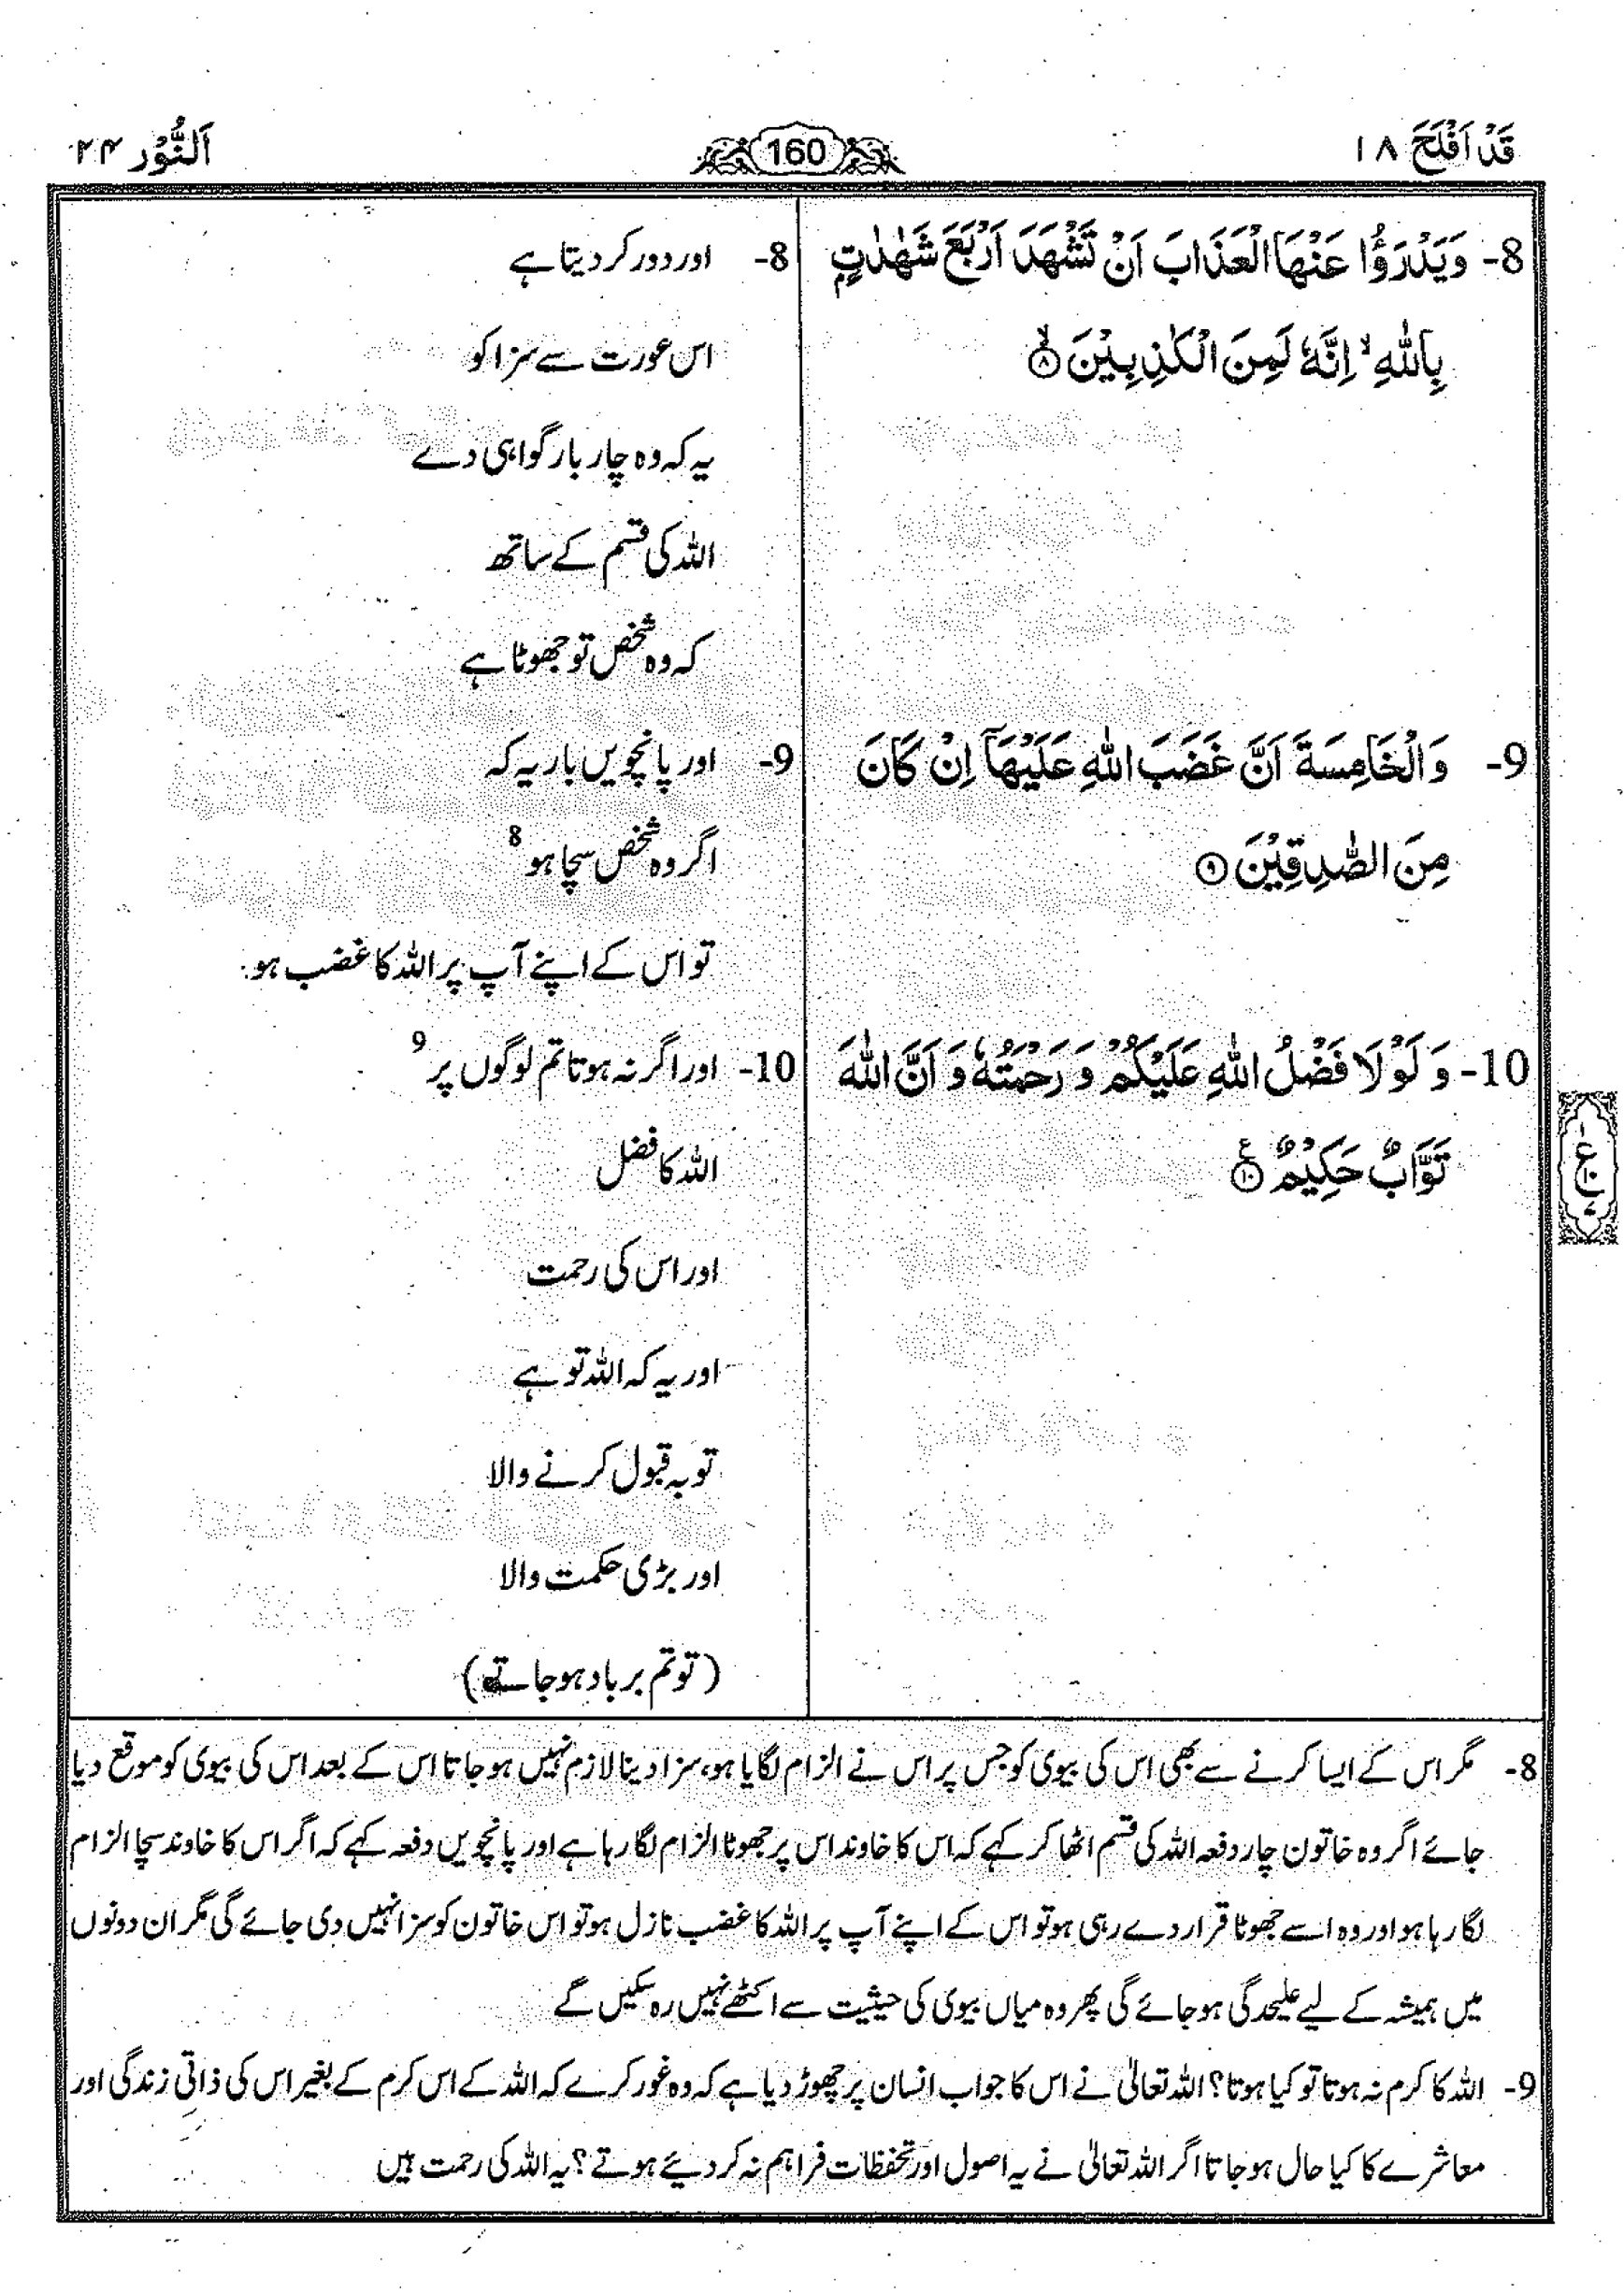 قَدْ اَفْلَحَ ۱۸
160
اَلنُّوْر ۲۴
8- وَيَدْرَؤُا عَنْهَا الْعَذَابَ اَنْ تَشْهَدَ اَرْبَعَ شَهٰدٰتٍۭ
بِاللّٰهِ ۙ اِنَّهٗ لَمِنَ الْكٰذِبِيْنَ ۙ﴿۸﴾
8- اور دور کر دیتا ہے
اس عورت سے سزا کو
یہ کہ وہ چار بار گواہی دے
اللہ کی قسم کے ساتھ
کہ وہ شخص تو جھوٹا ہے
9- وَالْخَامِسَةَ اَنَّ غَضَبَ اللّٰهِ عَلَيْهَاۤ اِنْ كَانَ
مِنَ الصّٰدِقِيْنَ ﴿۹﴾
9- اور پانچویں بار یہ کہ
اگر وہ شخص سچا ہو 8
تو اس کے اپنے آپ پر اللہ کا غضب ہو۔
10- وَ لَوْ لَا فَضْلُ اللّٰهِ عَلَيْكُمْ وَ رَحْمَتُهٗ وَ اَنَّ اللّٰهَ
تَوَّابٌ حَكِيْمٌ ﴿۱۰﴾ ع
10- اور اگر نہ ہوتا تم لوگوں پر 9
اللہ کا فضل
اور اس کی رحمت
اور یہ کہ اللہ تو ہے
توبہ قبول کرنے والا
اور بڑی حکمت والا
(تو تم برباد ہو جاتے)
ع
8- مگر اس کے ایسا کرنے سے بھی اس کی بیوی کو جس پر اس نے الزام لگایا ہو، سزا دینا لازم نہیں ہو جاتا اس کے بعد اس کی بیوی کو موقع دیا
جائے اگر وہ خاتون چار دفعہ اللہ کی قسم اٹھا کر کہے کہ اس کا خاوند اس پر جھوٹا الزام لگا رہا ہے اور پانچویں دفعہ کہے کہ اگر اس کا خاوند سچا الزام
لگا رہا ہو اور وہ اسے جھوٹا قرار دے رہی ہو تو اس کے اپنے آپ پر اللہ کا غضب نازل ہو تو اس خاتون کو سزا نہیں دی جائے گی مگر ان دونوں
میں ہمیشہ کے لیے علیحدگی ہو جائے گی پھر وہ میاں بیوی کی حیثیت سے اکٹھے نہیں رہ سکیں گے
9- اللہ کا کرم نہ ہوتا تو کیا ہوتا؟ اللہ تعالیٰ نے اس کا جواب انسان پر چھوڑ دیا ہے کہ وہ غور کرے کہ اللہ کے اس کرم کے بغیر اس کی ذاتی زندگی اور
معاشرے کا کیا حال ہو جاتا اگر اللہ تعالیٰ نے یہ اصول اور تحفظات فراہم نہ کر دیئے ہوتے؟ یہ اللہ کی رحمت ہیں